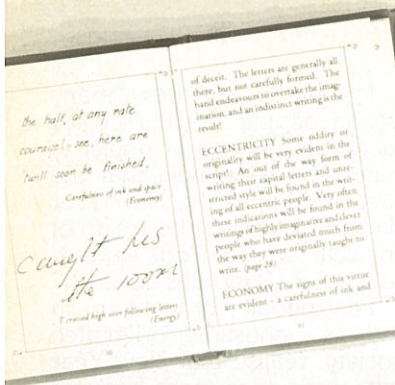 the half, at any rate
courage! - see, here are
'twill soon be finished.
Carefulness of ink and space
(Economy)
caught his
the room
T crossed high over following letters
(Energy)
of deceit. The letters are generally all
there, but not carefully formed. The
hand endeavours to overtake the imag-
ination, and an indistinct writing is the
result!
ECCENTRICITY Some oddity or
originality will be very evident in the
script! An out of the way form of
writing their capital letters and unre-
stricted style will be found in the writ-
ing of all eccentric people. Very often
these indications will be found in the
writings of highly imaginative and clever
people who have deviated much from
the way they were originally taught to
write. (page 28)
ECONOMY The signs of this virtue
are evident - a carefulness of ink and